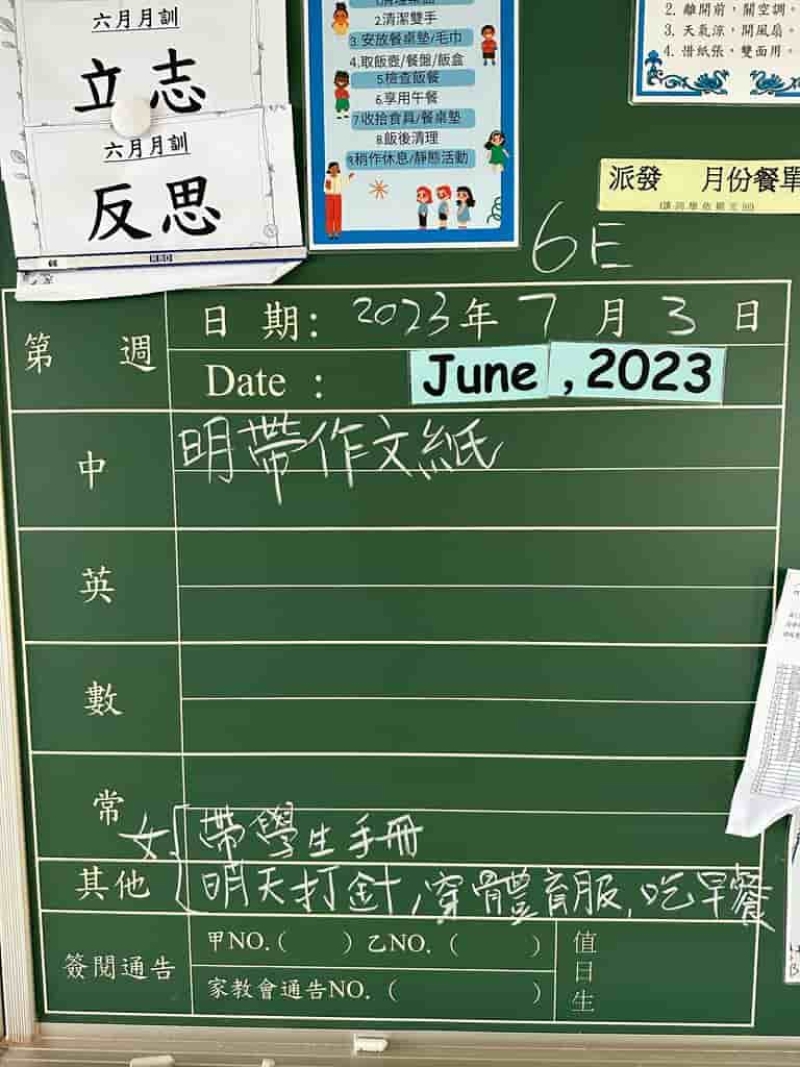 六月月訓
立志
六月月訓
反思
2清潔雙手
3.安放餐桌墊/毛巾
4.取飯壺/餐盤/飯盒
5檢查飯餐
6.享用午餐
7收拾食具/餐桌墊
8.飯後清理
9.稍作休息/靜態活動
2. 離開前，關空調。
3. 天氣涼，開風扇。
4. 借紙張，雙面用。
派發 月份餐單
6E
第 週
日 期：2023年 7 月 3 日
Date : June , 2023
中 明帶作文紙
英
數
常
女. 帶學生手冊
其他 明天打針,穿體育服,吃早餐
簽閱通告
甲NO.( ) 乙NO. ( )
家教會通告NO. ( )
值日生